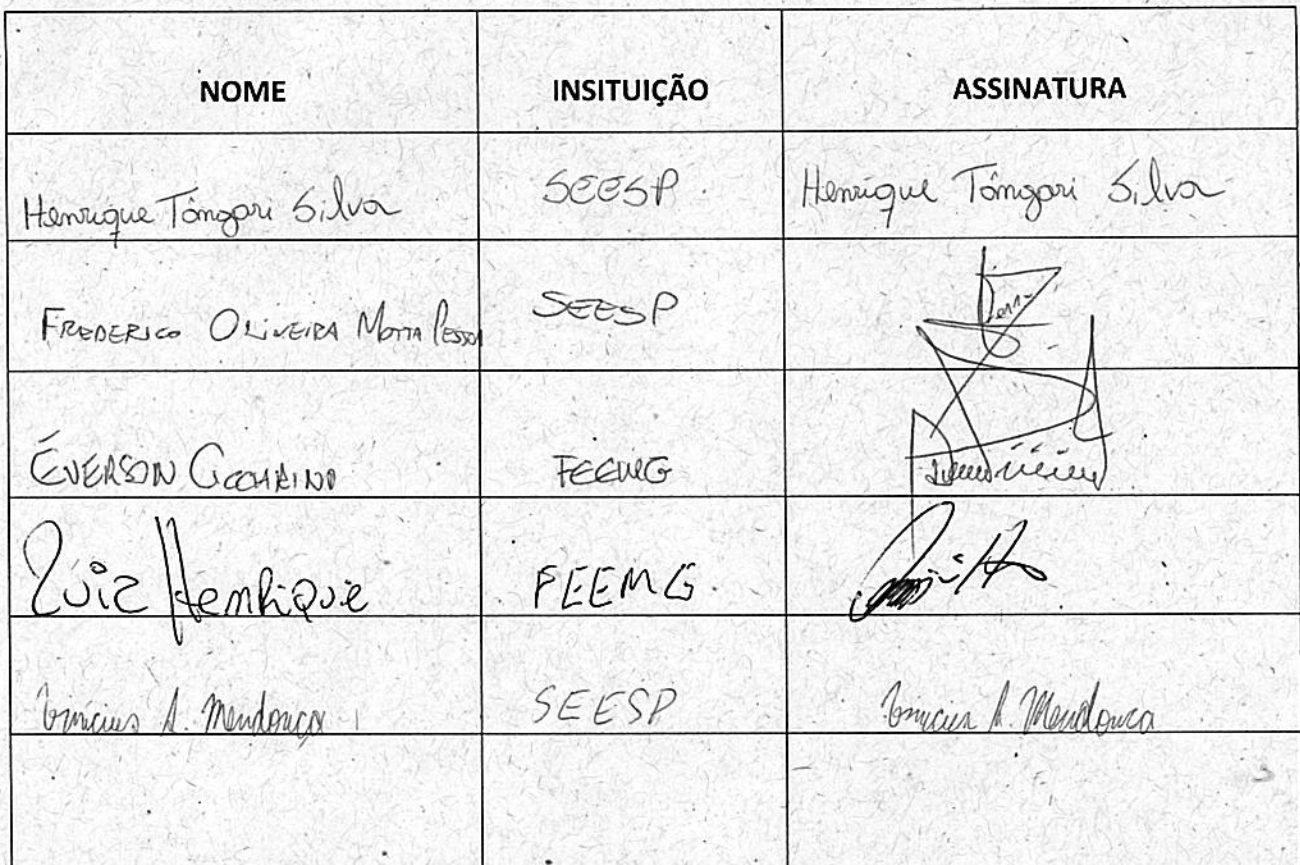 NOME INSITUIÇÃO ASSINATURA
Henrique Tângari Silva SEESP Henrique Tângari Silva
FREDERICO OLIVEIRA MOTTA PESSOA SEESP
ÉVERSON FEEMG
Luiz Henrique FEEMG
Vinicius A. Mendonça SEESP Vinicius A. Mendonça